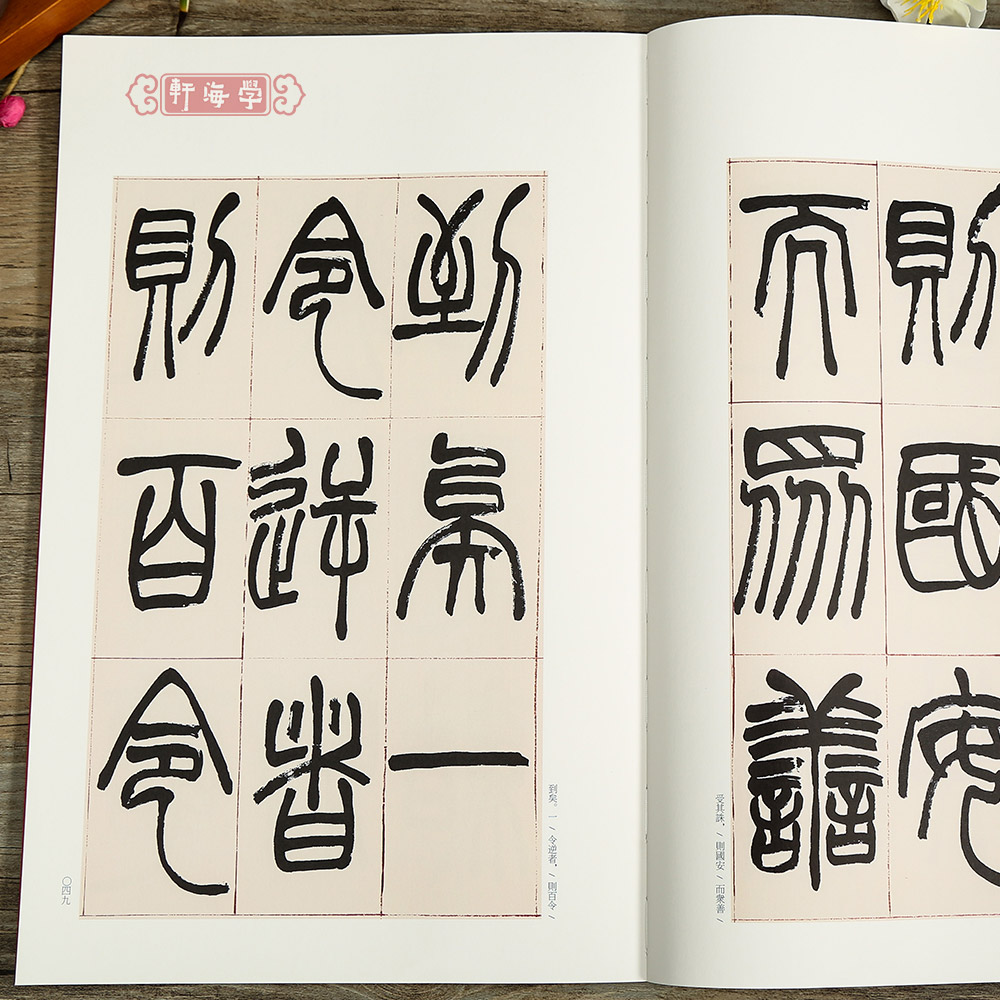 學海軒
則國安
而衆善
受其誅，/則國安/而衆善/
到矣一
令逆者
則百令
到矣。一/令逆者，/則百令/
〇四九